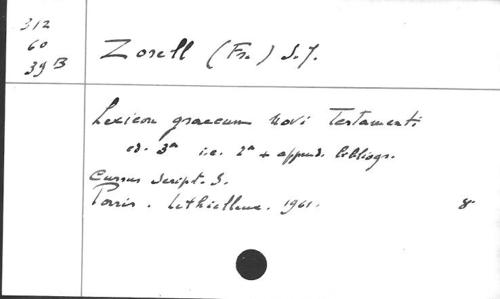 312
60
39 B
Zorell (Fr.) S.J.
Lexicon graecum Novi Testamenti
ed. 3ª i.e. 2ª + append. bibliogr.
Cursus Script. S.
Paris. Lethielleux. 1961. 8°